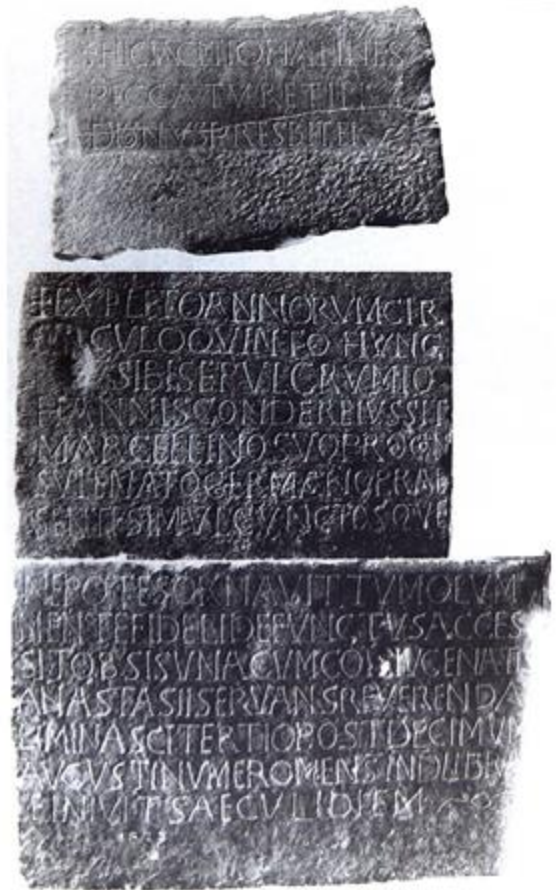 HIC IACET IOHANNES
PECCATVR ET IN
DIGNVS PRESBITER
EXPLETO ANNORVM CIR
CVLO QVINTO HVNC
SIBI SEPVLCRVM IO
HANNIS CONDERE IVSSIT
MARCELLINO SVO PROCV
SVLE NATO GERMANIO PRAE
SENTE SIMVL CVNCTOSQVE
NEPOTES ORNAVIT TVMOLVM
MENTE FIDELI DEFVNCTVS ACCES
SIT OBSIS VNA CVM CONIVGE NATIS
ANASTASII SERVANS REVERENDA
LIMINA SCI TERTIO POST DECIMVM
AVGVSTI NVMERO MENS IN DVBB
FINIVIT SAECVLI DIEM